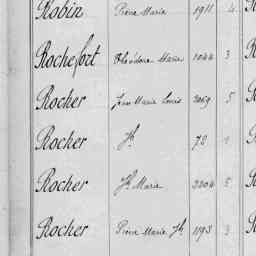 Robin Pierre Marie 1911 4
Rochefort Théodore Marie 1044 3
Rocher Jean Marie Louis 2069 5
Rocher Jh 72 1
Rocher Jh Marie 2204 5
Rocher Pierre Marie Jh 1193 3